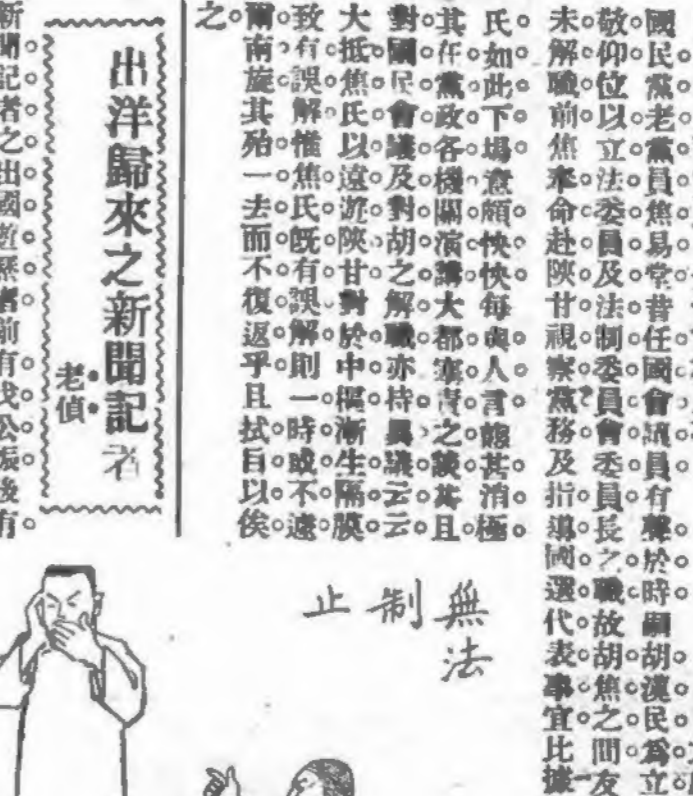 國民黨老黨員焦易堂昔任國會議員有聲於時嗣胡漢民爲立
敬仰位以立法委員及法制委員會委員長之職故胡焦之間友
未解職前焦奉命赴陝甘視察黨務及指導國選代表事宜比據
氏如此下場意頗怏怏每與人言態甚消極
其在黨政各機關演講大都塞責之談甚且
對國民會議及對胡之解職亦持異議云云
大抵焦氏以遠游陝甘對於中樞漸生隔膜
致有誤解惟焦氏既有誤解則一時或不遽
爾南旋其殆一去而不復返乎且拭目以俟
之
出洋歸來之新聞記者
老偵
新聞記者之出國遊歷者前有戈公振後有
無法
制止